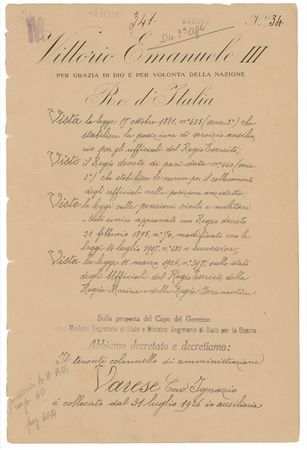 341.
N.° 34
Vittorio Emanuele III
PER GRAZIA DI DIO E PER VOLONTÀ DELLA NAZIONE
Re d'Italia
Vista la legge 17 ottobre 1881, n° 435 (serie 3ª) che
stabilisce la posizione di servizio ausilia-
rio per gli ufficiali del Regio Esercito;
Visto il Regio decreto di pari data n°
3ª) che stabilisce le norme per il collocamento
degli ufficiali nella posizione anzidetta;
Viste le leggi sulle pensioni civili e militari
testo unico approvato con Regio decreto
21 febbraio 1895, n° 70, modificato con le
leggi 14 luglio e successive;
Vista la legge 11 marzo 1926, n° 397, sullo stato
degli Ufficiali del Regio Esercito, della
Regia Marina e della Regia Aeronautica
Sulla proposta del Capo del Governo
Primo Ministro Segretario di Stato e Ministro Segretario di Stato per la Guerra
Abbiamo decretato e decretiamo:
Il tenente colonnello di amministrazione
Varese Cav. Ignazio
è collocato dal 31 luglio 1926 in ausiliaria